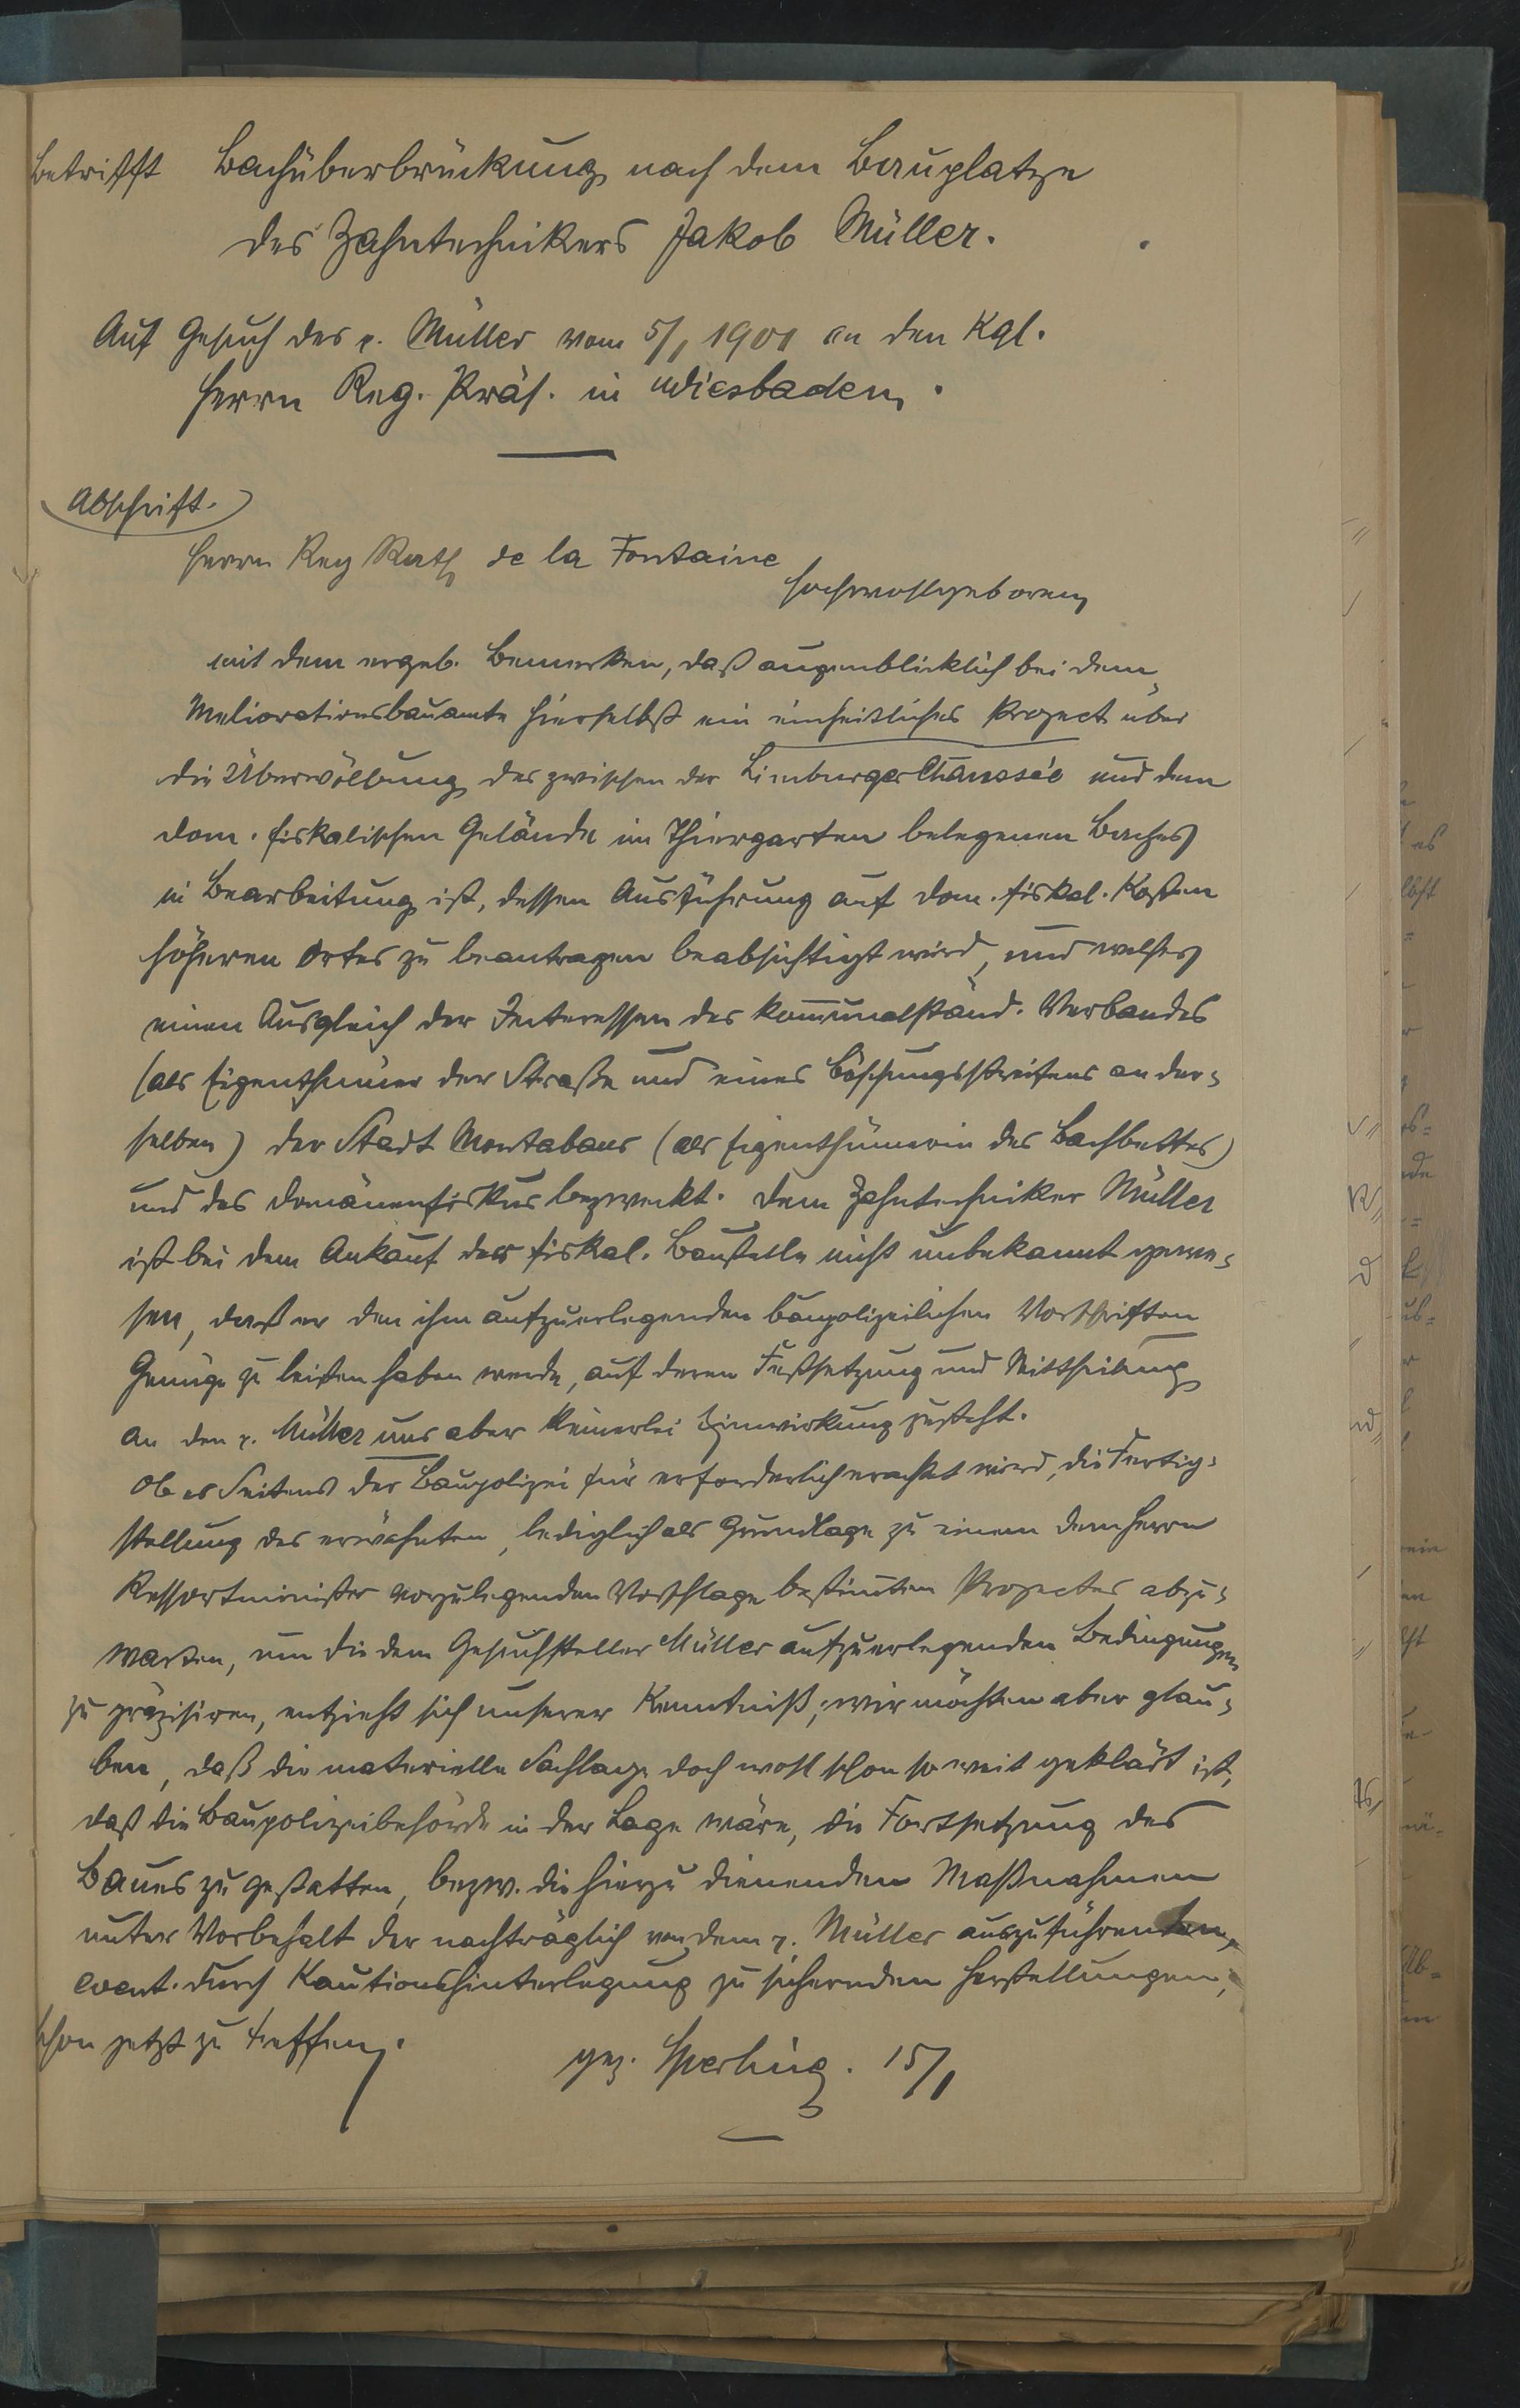 Betrifft Bachüberbrückung nach dem Bauplatze
des Zahntechnikers Jakob Müller.
Auf Gesuch des p. Müller vom 5/1 1901 an den Kgl.
Herrn Reg. Präs. in Wiesbaden.
Abschrift.
Herrn Reg Rath de la Fontaine
Hochwohlgeboren
mit dem ergeb. Bemerken, daß augenblicklich bei dem
Meliorationsbauamte hierselbst ein einheitliches Project über
die Überwölbung des zwischen der Limburger Chaussée und dem
dom. fiskalischen Gelände im Thiergarten belegenen Baches
in Bearbeitung ist, dessen Ausführung auf dom. fiskal. Kosten
höheren Ortes zu beantragen beabsichtigt wird, und welches
einen Ausgleich der Interessen des kommunalständ. Verbandes
(als Eigenthümer der Straße und eines Böschungsstreifens an der-
selben) der Stadt Montabaur (als Eigenthümerin des Bachbettes)
und des Domänenfiskus bezweckt. Dem Zahntechniker Müller
ist bei dem Ankauf der fiskal. Baustelle nicht unbekannt gewe-
sen, daß er den ihm aufzuerlegenden baupolizeilichen Vorschriften
Genüge zu leisten haben werde, auf deren Festsetzung und Mittheilung
an den p. Müller uns aber keinerlei Einwirkung zusteht.
Ob es Seitens der Baupolizei für erforderlich erachtet wird, die Fertig-
stellung des erwähnten, lediglich als Grundlage zu einem dem Herrn
Ressortminister vorzulegenden Vorschlage bestimmten Projectes abzu-
warten, um die dem Gesuchsteller Müller aufzuerlegenden Bedingungen
zu präzisiren, entzieht sich unserer Kenntniß; wir möchten aber glau-
ben, daß die materielle Sachlage doch wohl schon so weit geklärt ist,
daß die Baupolizeibehörde in der Lage wäre, die Fortsetzung des
Baues zu gestatten, bezw. die hierzu dienenden Maßnahmen
unter Vorbehalt der nachträglich von dem p. Müller auszuführenden,
event. durch Kautionshinterlegung zu sichernden Herstellungen,
schon jetzt zu treffen.
gez. Sperling. 15/1